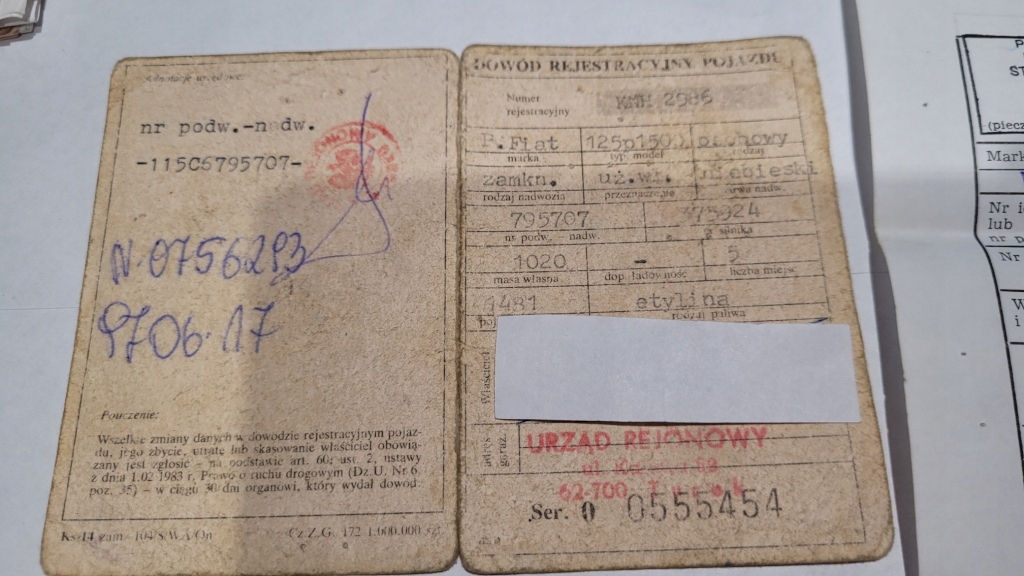 Adnotacje urzędowe:
nr podw.-nadw.
-115C6795707-
N.0756293
9706.17
Pouczenie:
Wszelkie zmiany danych w dowodzie rejestracyjnym pojaz-
du, jego zbycie, utratę lub skasowanie właściciel obowią-
zany jest zgłosić - na podstawie art. 60, ust. 2, ustawy
z dnia 1.02 1983 r. Prawo o ruchu drogowym (Dz.U. Nr 6
poz. 35) - w ciągu 30 dni organowi, który wydał dowód.
zam. 104/S/WA/On Cz.Z.G. 172 1.000.000 szt.
DOWÓD REJESTRACYJNY POJAZDU
Numer
rejestracyjny
KMH 2986
P.Fiat 125p1500 osobowy
marka typ, model rodzaj
zamkn. uż.wł. niebieski
rodzaj nadwozia przeznaczenie barwa nadw.
795707 375924
nr podw. - nadw. silnika
1020 - 5
masa własna dop. ładowność liczba miejsc
1481 etylina
poj rodzaj paliwa
Właściciel
adres
URZĄD REJONOWY
ul.
62-700 Turek
Ser. 0 0555454
ST
(piecz
Mark
Nr i
lub
Nr
W
i